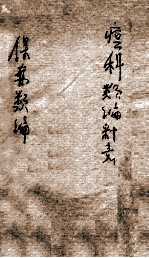 痘科類編釋意
保嬰類編